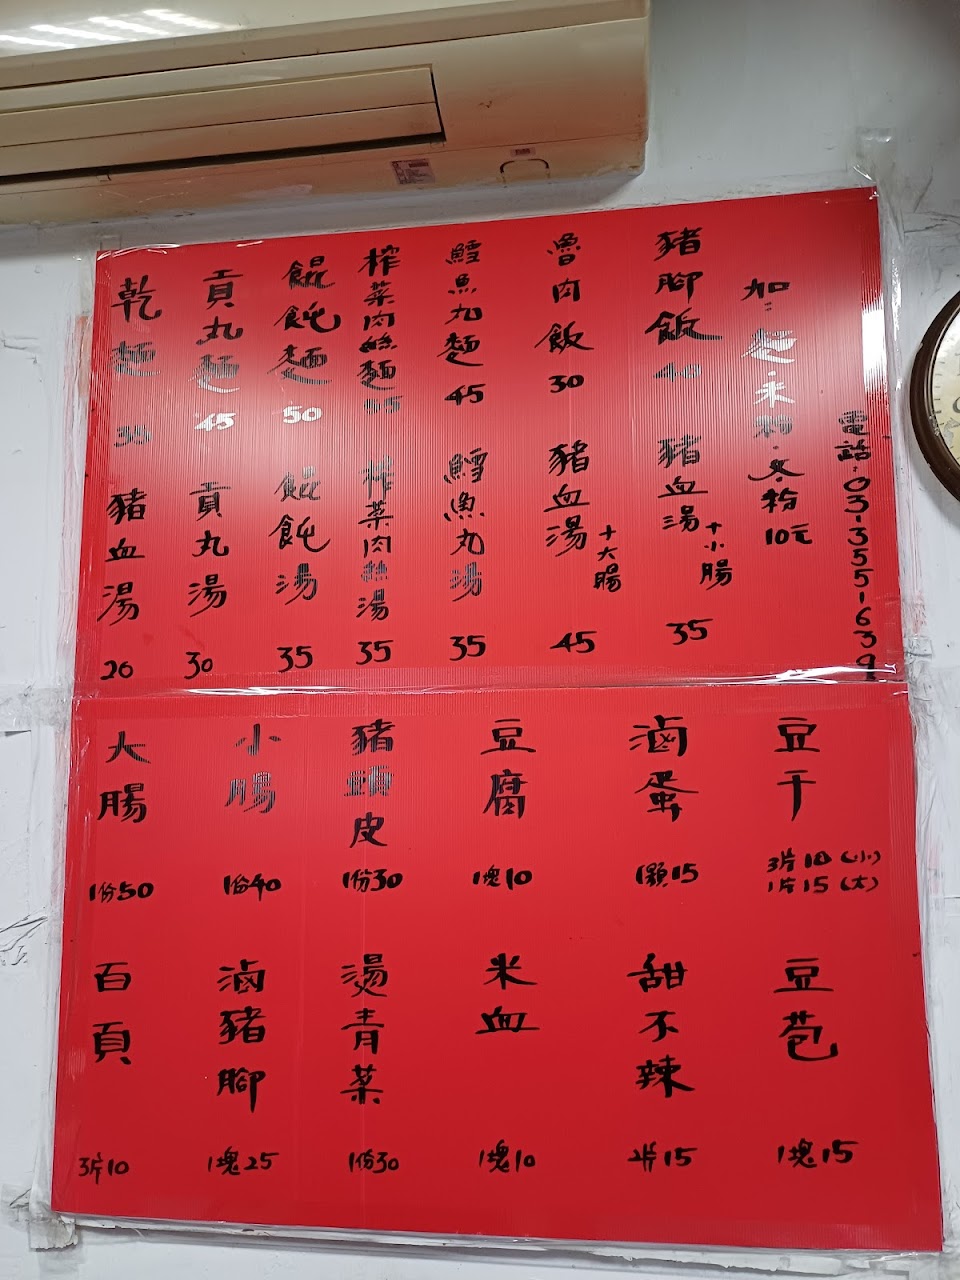 乾麵 35
貢丸麵 45
餛飩麵 50
榨菜肉絲麵
鱈魚丸麵 45
魯肉飯 30
豬腳飯 40
加：麵．米粉．冬粉 10元
電話：03-355-1639
豬血湯 20
貢丸湯 30
餛飩湯 35
榨菜肉絲湯 35
鱈魚丸湯 35
豬血湯+大腸 45
豬血湯+小腸 35
大腸 1份50
小腸 1份40
豬頭皮 1份30
豆腐 1塊10
滷蛋 1顆15
豆干 3片10(小)
1片15(大)
百頁 3片10
滷豬腳 1塊25
燙青菜 1份30
米血 1塊10
甜不辣 2片15
豆苞 1塊15